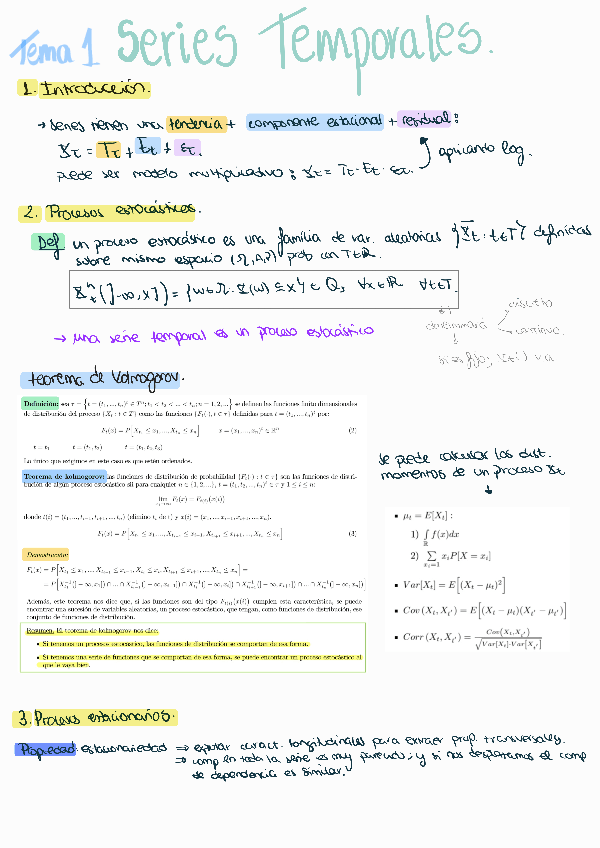 Tema 1 Series Temporales.
1. Introducción.
→ series tienen una tendencia + componente estacional + residual:
Xt = Tt + Et + εt.
puede ser modelo multiplicativo: Xt = Tt · Et · εt.
aplicando log.
2. Procesos estocásticos.
Def un proceso estocástico es una familia de var. aleatorias {Xt : t∈T} definidas
sobre mismo espacio (Ω, A, P) prob con T∈ℝ.
∀x∈ℝ ∀t∈T.
→ una serie temporal es un proceso estocástico
determinará
discreto
continuo.
teorema de Kolmogorov.
Definición: sea τ = {t = (t₁, ..., tₙ)' ∈ Tⁿ; t₁ < t₂ < ... < tₙ; n = 1, 2, ...} se definen las funciones finito dimensionales
de distribución del proceso {Xt : t ∈ T} como las funciones {Ft(·), t ∈ τ} definidas para t = (t₁, ..., tₙ)' por:
Ft(x) = P[Xt₁ ≤ x₁, ..., Xtₙ ≤ xₙ] x = (x₁, ..., xₙ)' ∈ ℝⁿ (2)
t = t₁ t = (t₁, t₂) t = (t₁, t₂, t₃)
Lo único que exigimos en este caso es que estén ordenados.
Teorema de kolmogorov: las funciones de distribución de probabilidad {Ft(·) : t ∈ τ} son las funciones de distri-
bución de algún proceso estocástico sii para cualquier n ∈ {1, 2, ...}, t = (t₁, ..., tₙ)' ∈ τ y 1 ≤ i ≤ n:
lim Ft(x) = Ft(i)(x(i))
donde t(i) = (t₁, ..., tᵢ₋₁, tᵢ₊₁, ..., tₙ)' (elimino tᵢ de t) y x(i) = (x₁, ..., xᵢ₋₁, xᵢ₊₁, ..., xₙ)'.
Ft(x) = P[Xt₁ ≤ x₁, ..., Xtᵢ₋₁ ≤ xᵢ₋₁, Xtᵢ ≤ xᵢ, Xtᵢ₊₁ ≤ xᵢ₊₁, ..., Xtₙ ≤ xₙ] (3)
Demostración:
Además, este teorema nos dice que, si las funciones son del tipo Ft(i)(x(i)) cumplen esta característica, se puede
encontrar una sucesión de variables aleatorias, un proceso estocástico, que tengan, como funciones de distribución, ese
conjunto de funciones de distribución.
Resumen. El teorema de kolmogorov nos dice:
• Si tenemos un procesos estocástico, las funciones de distribución se comportan de esa forma.
• Si tenemos una serie de funciones que se comportan de esa forma, se puede encontrar un proceso estocástico al
que le vaya bien.
se puede calcular los dist.
momentos de un proceso Xt
↓
• μt = E[Xt] :
1) ∫ℝ f(x)dx
2) Σ xᵢP[X = xᵢ]
• Var[Xt] = E[(Xt − μt)²]
• Cov(Xt, Xt') = E[(Xt − μt)(Xt' − μt')]
• Corr(Xt, Xt') = Cov(Xt, Xt') / √(Var[Xt]·Var[Xt'])
3. Procesos estacionarios.
Propiedad: estacionariedad ⇒ explotar caract. longitudinales para extraer prop. transversales.
⇒ comp en toda la serie es muy parecido, y si nos desplazamos el comp
de dependencia es similar.